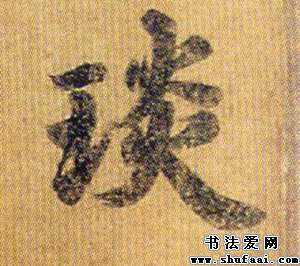 琰
书法爱网
www.shufaai.com